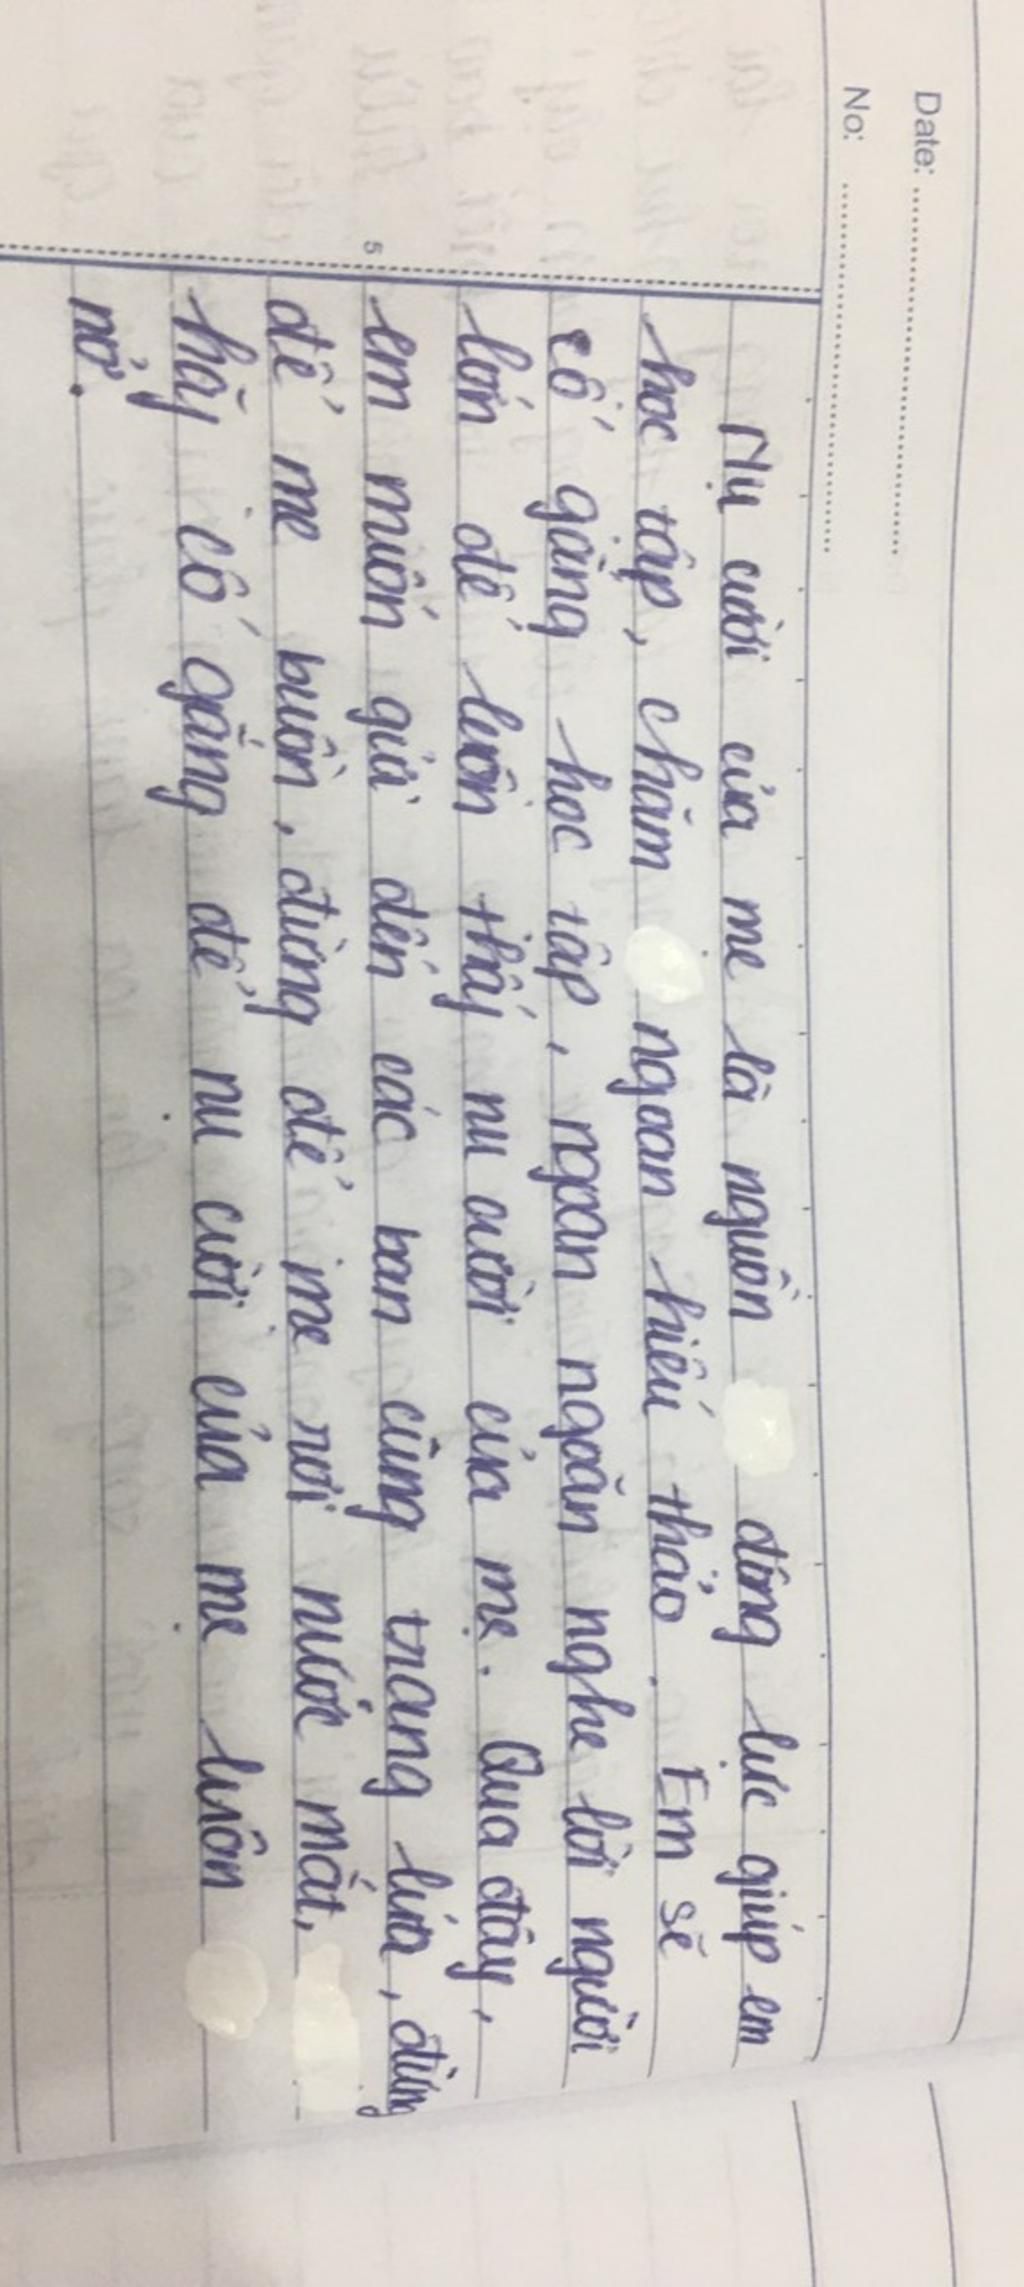 Date:
No:
Nụ cười của mẹ là nguồn động lực giúp em
học tập, chăm ngoan hiếu thảo. Em sẽ
cố gắng học tập, ngoan ngoãn nghe lời người
lớn để luôn thấy nụ cười của mẹ. Qua đây,
5 em muốn gửi đến các bạn cùng trang lứa, đừng
để mẹ buồn, đừng để mẹ rơi nước mắt,
hãy cố gắng để nụ cười của mẹ luôn
nở.